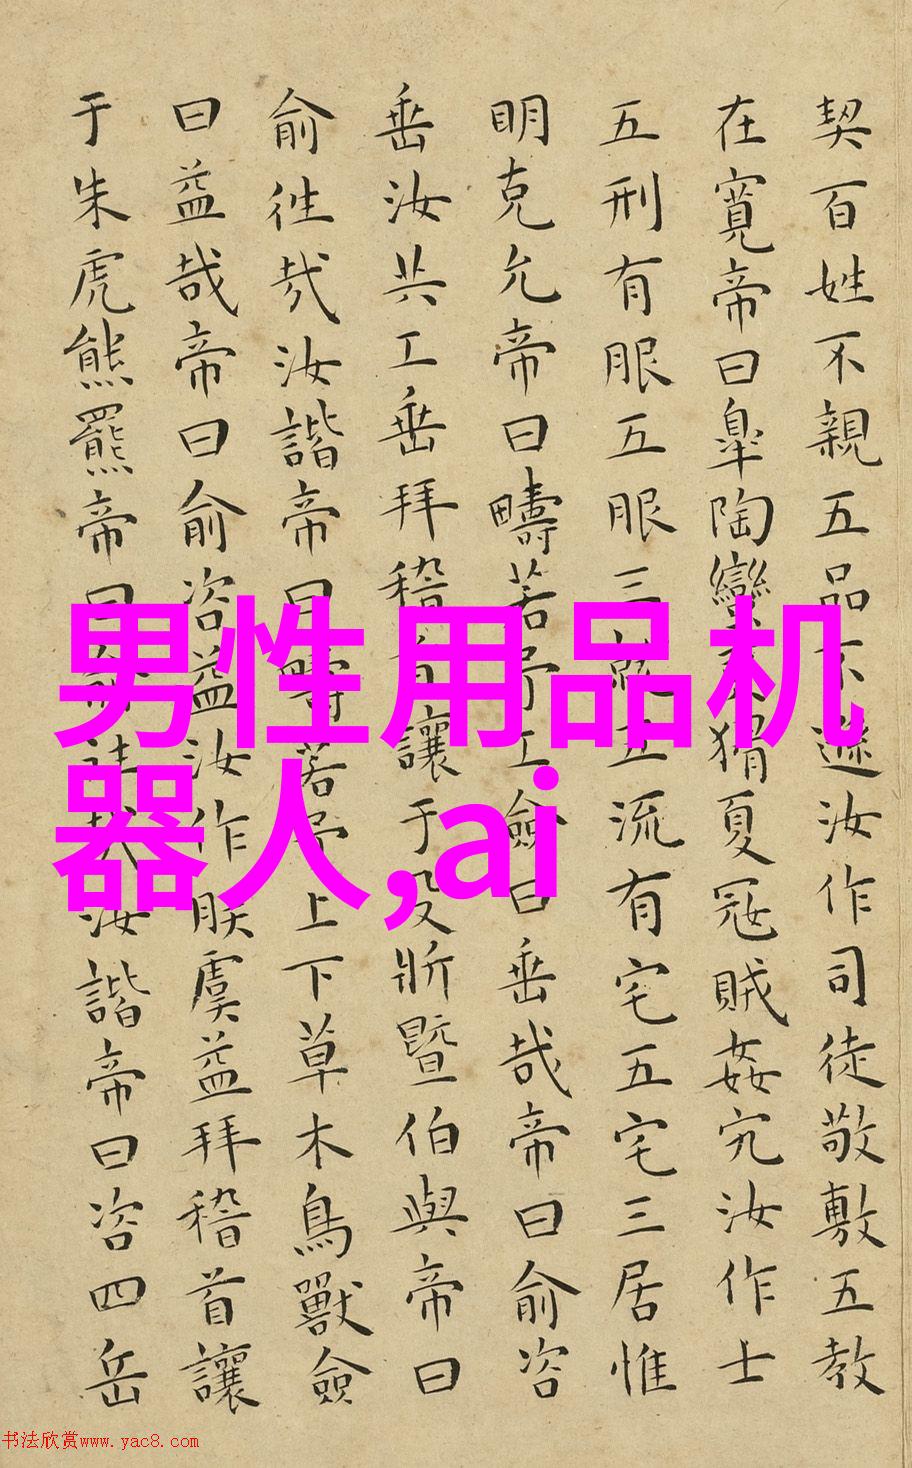 契百姓不親五品不遜汝作司徒敬敷五教
在寬帝曰皐陶蠻夷猾夏冦賊姦宄汝作士
五刑有服五服三就五流有宅五宅三居惟
明克允帝曰疇若予工僉曰垂哉帝曰俞咨
垂汝共工垂拜稽首讓于殳斨暨伯與帝曰
俞徃哉汝諧帝曰疇若予上下草木鳥獸僉
曰益哉帝曰俞咨益汝作朕虞益拜稽首讓
于朱虎熊羆帝曰俞徃哉汝諧帝曰咨四岳
男性用品机
器人,ai
书法欣赏www.yac8.com